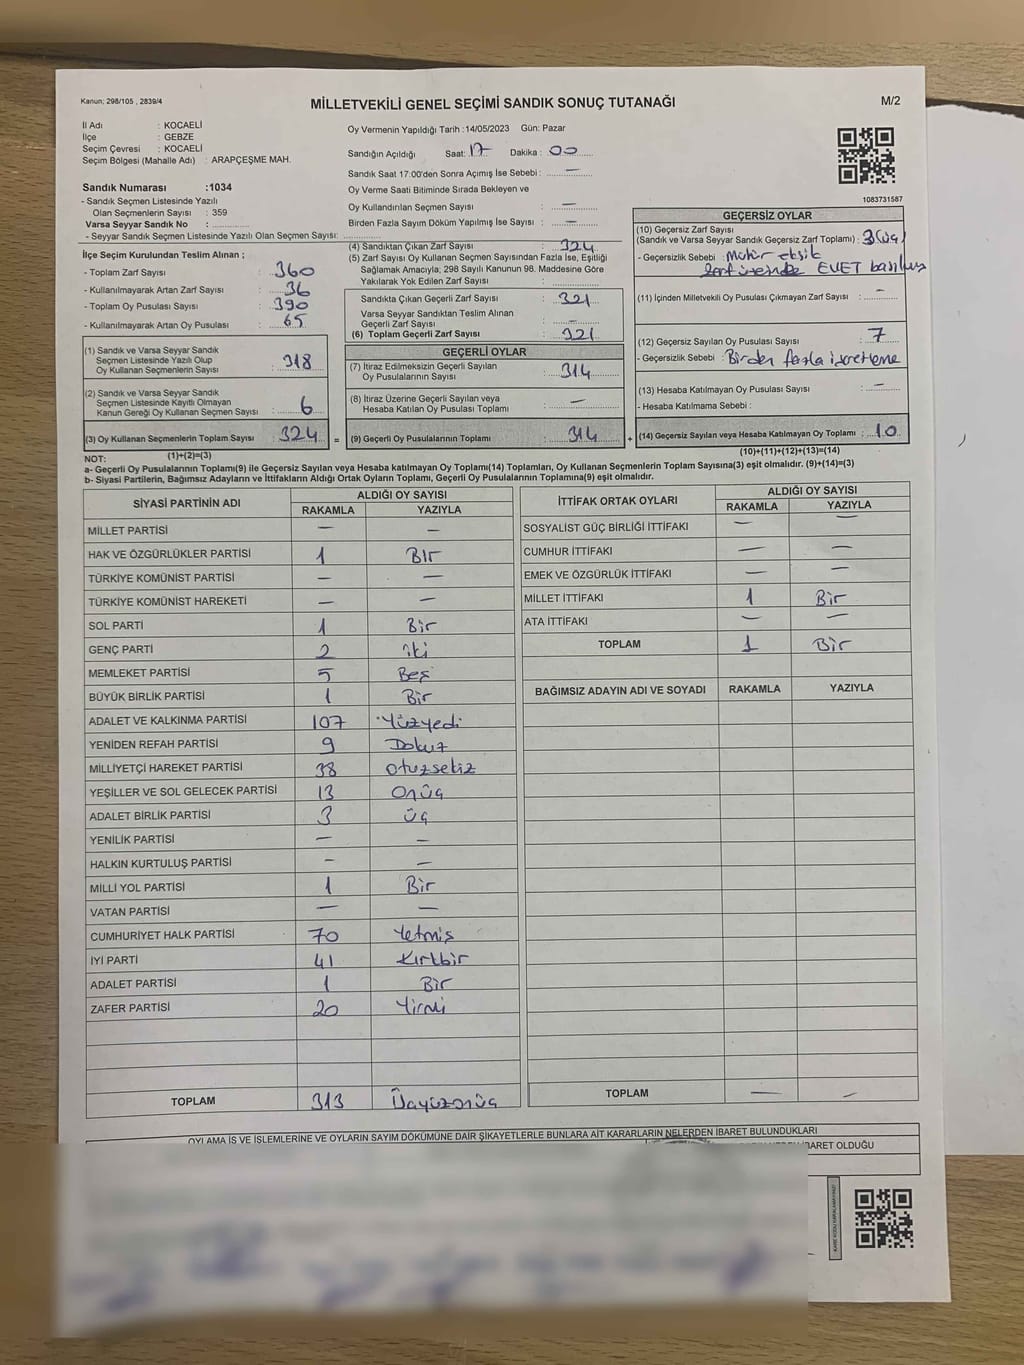 Kanun; 298/105 , 2839/4
MİLLETVEKİLİ GENEL SEÇİMİ SANDIK SONUÇ TUTANAĞI
M/2
İl Adı : KOCAELİ
İlçe : GEBZE
Seçim Çevresi : KOCAELİ
Seçim Bölgesi (Mahalle Adı) : ARAPÇEŞME MAH.
Sandık Numarası :1034
- Sandık Seçmen Listesinde Yazılı
Olan Seçmenlerin Sayısı : 359
Varsa Seyyar Sandık No :
- Seyyar Sandık Seçmen Listesinde Yazılı Olan Seçmen Sayısı:
İlçe Seçim Kurulundan Teslim Alınan ;
- Toplam Zarf Sayısı : 360
- Kullanılmayarak Artan Zarf Sayısı : 36
- Toplam Oy Pusulası Sayısı : 390
- Kullanılmayarak Artan Oy Pusulası : 65
(1) Sandık ve Varsa Seyyar Sandık
Seçmen Listesinde Yazılı Olup
Oy Kullanan Seçmenlerin Sayısı : 318
(2) Sandık ve Varsa Seyyar Sandık
Seçmen Listesinde Kayıtlı Olmayan
Kanun Gereği Oy Kullanan Seçmen Sayısı : 6
(3) Oy Kullanan Seçmenlerin Toplam Sayısı : 324 =
(1)+(2)=(3)
Oy Vermenin Yapıldığı Tarih :14/05/2023 Gün: Pazar
Sandığın Açıldığı Saat: 17 Dakika : 00
Sandık Saat 17:00'den Sonra Açımış İse Sebebi : —
Oy Verme Saati Bitiminde Sırada Bekleyen ve
Oy Kullandırılan Seçmen Sayısı : —
Birden Fazla Sayım Döküm Yapılmış İse Sayısı : —
(4) Sandıktan Çıkan Zarf Sayısı : 324
(5) Zarf Sayısı Oy Kullanan Seçmen Sayısından Fazla İse, Eşitliği
Sağlamak Amacıyla; 298 Sayılı Kanunun 98. Maddesine Göre
Yakılarak Yok Edilen Zarf Sayısı :
Sandıkta Çıkan Geçerli Zarf Sayısı : 321
Varsa Seyyar Sandıktan Teslim Alınan
Geçerli Zarf Sayısı : —
(6) Toplam Geçerli Zarf Sayısı : 321
GEÇERLİ OYLAR
(7) İtiraz Edilmeksizin Geçerli Sayılan
Oy Pusulalarının Sayısı : 314
(8) İtiraz Üzerine Geçerli Sayılan veya
Hesaba Katılan Oy Pusulası Toplamı : —
(9) Geçerli Oy Pusulalarının Toplamı : 314 +
1083731587
GEÇERSİZ OYLAR
(10) Geçersiz Zarf Sayısı
(Sandık ve Varsa Seyyar Sandık Geçersiz Zarf Toplamı) : 3 (üç)
- Geçersizlik Sebebi : Mühür eksik
Zarf üzerinde EVET basılmış
(11) İçinden Milletvekili Oy Pusulası Çıkmayan Zarf Sayısı : —
(12) Geçersiz Sayılan Oy Pusulası Sayısı : 7
- Geçersizlik Sebebi : Birden fazla işaretleme
(13) Hesaba Katılmayan Oy Pusulası Sayısı : —
- Hesaba Katılmama Sebebi :
(14) Geçersiz Sayılan veya Hesaba Katılmayan Oy Toplamı : 10
(10)+(11)+(12)+(13)=(14)
NOT:
a- Geçerli Oy Pusulalarının Toplamı(9) ile Geçersiz Sayılan veya Hesaba katılmayan Oy Toplamı(14) Toplamları, Oy Kullanan Seçmenlerin Toplam Sayısına(3) eşit olmalıdır. (9)+(14)=(3)
b- Siyasi Partilerin, Bağımsız Adayların ve İttifakların Aldığı Ortak Oyların Toplamı, Geçerli Oy Pusulalarının Toplamına(9) eşit olmalıdır.
SİYASİ PARTİNİN ADI
ALDIĞI OY SAYISI
RAKAMLA YAZIYLA
MİLLET PARTİSİ — —
HAK VE ÖZGÜRLÜKLER PARTİSİ 1 Bir
TÜRKİYE KOMÜNİST PARTİSİ — —
TÜRKİYE KOMÜNİST HAREKETİ — —
SOL PARTİ 1 Bir
GENÇ PARTİ 2 iki
MEMLEKET PARTİSİ 5 Beş
BÜYÜK BİRLİK PARTİSİ 1 Bir
ADALET VE KALKINMA PARTİSİ 107 Yüzyedi
YENİDEN REFAH PARTİSİ 9 Dokuz
MİLLİYETÇİ HAREKET PARTİSİ 38 otuzsekiz
YEŞİLLER VE SOL GELECEK PARTİSİ 13 Onüç
ADALET BİRLİK PARTİSİ 3 üç
YENİLİK PARTİSİ — —
HALKIN KURTULUŞ PARTİSİ — —
MİLLİ YOL PARTİSİ 1 Bir
VATAN PARTİSİ — —
CUMHURİYET HALK PARTİSİ 70 Yetmiş
İYİ PARTİ 41 Kırkbir
ADALET PARTİSİ 1 Bir
ZAFER PARTİSİ 20 Yirmi
TOPLAM 313 Üçyüzonüç
İTTİFAK ORTAK OYLARI
ALDIĞI OY SAYISI
RAKAMLA YAZIYLA
SOSYALİST GÜÇ BİRLİĞİ İTTİFAKI — —
CUMHUR İTTİFAKI — —
EMEK VE ÖZGÜRLÜK İTTİFAKI — —
MİLLET İTTİFAKI 1 Bir
ATA İTTİFAKI — —
TOPLAM 1 Bir
BAĞIMSIZ ADAYIN ADI VE SOYADI RAKAMLA YAZIYLA
TOPLAM — —
OYLAMA İŞ VE İŞLEMLERİNE VE OYLARIN SAYIM DÖKÜMÜNE DAİR ŞİKAYETLERLE BUNLARA AİT KARARLARIN NELERDEN İBARET BULUNDUKLARI
İBARET OLDUĞU